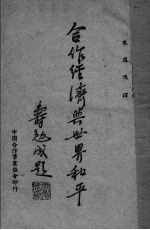 朱晨熹譯
合作經濟與世界和平
壽勉成題
中國合作事業協會印行